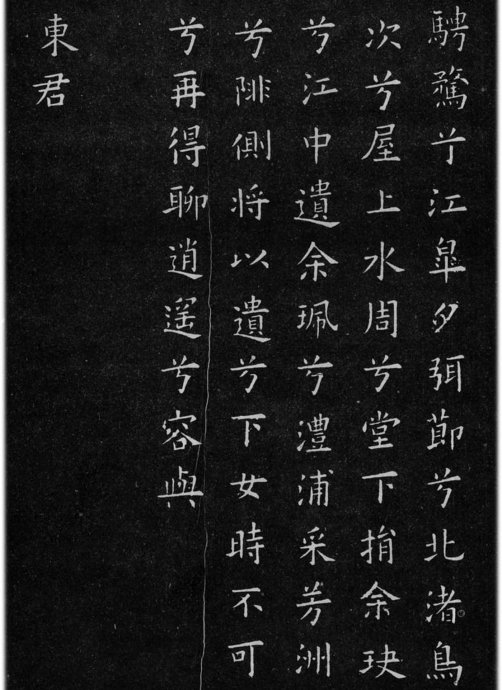 騁騖兮江皐夕弭節兮北渚鳥
次兮屋上水周兮堂下捐余玦
兮江中遺余珮兮澧浦采芳洲
兮陫側将以遺兮下女時不可
兮再得聊逍遥兮容與
東君